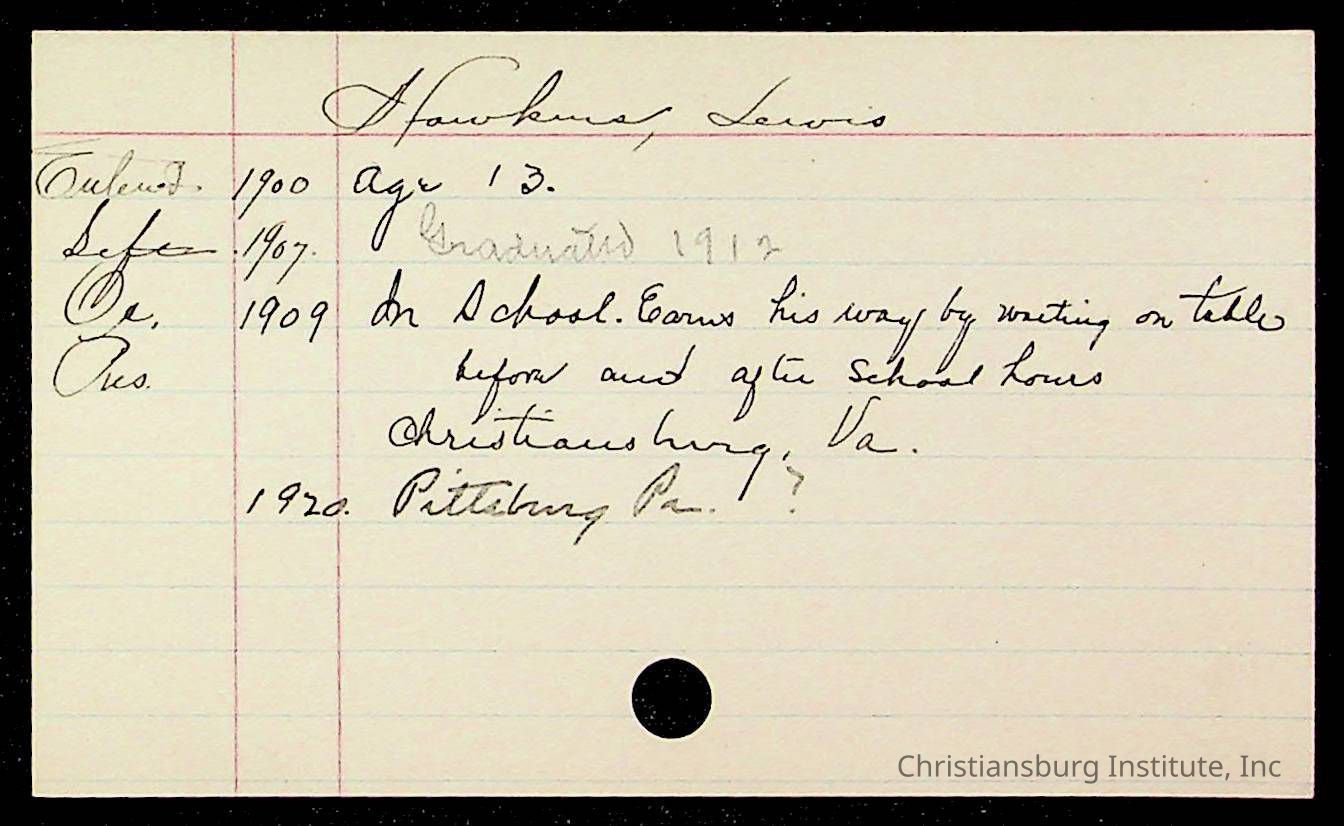 Hawkins, Lewis
Entered. 1900 Age 13.
Left 1907. Graduated 1912
Oc. 1909 In School. Earns his way by waiting on table
Res. before and after School hours
Christiansburg, Va.
1920. Pittsburg Pa. ?
Christiansburg Institute, Inc